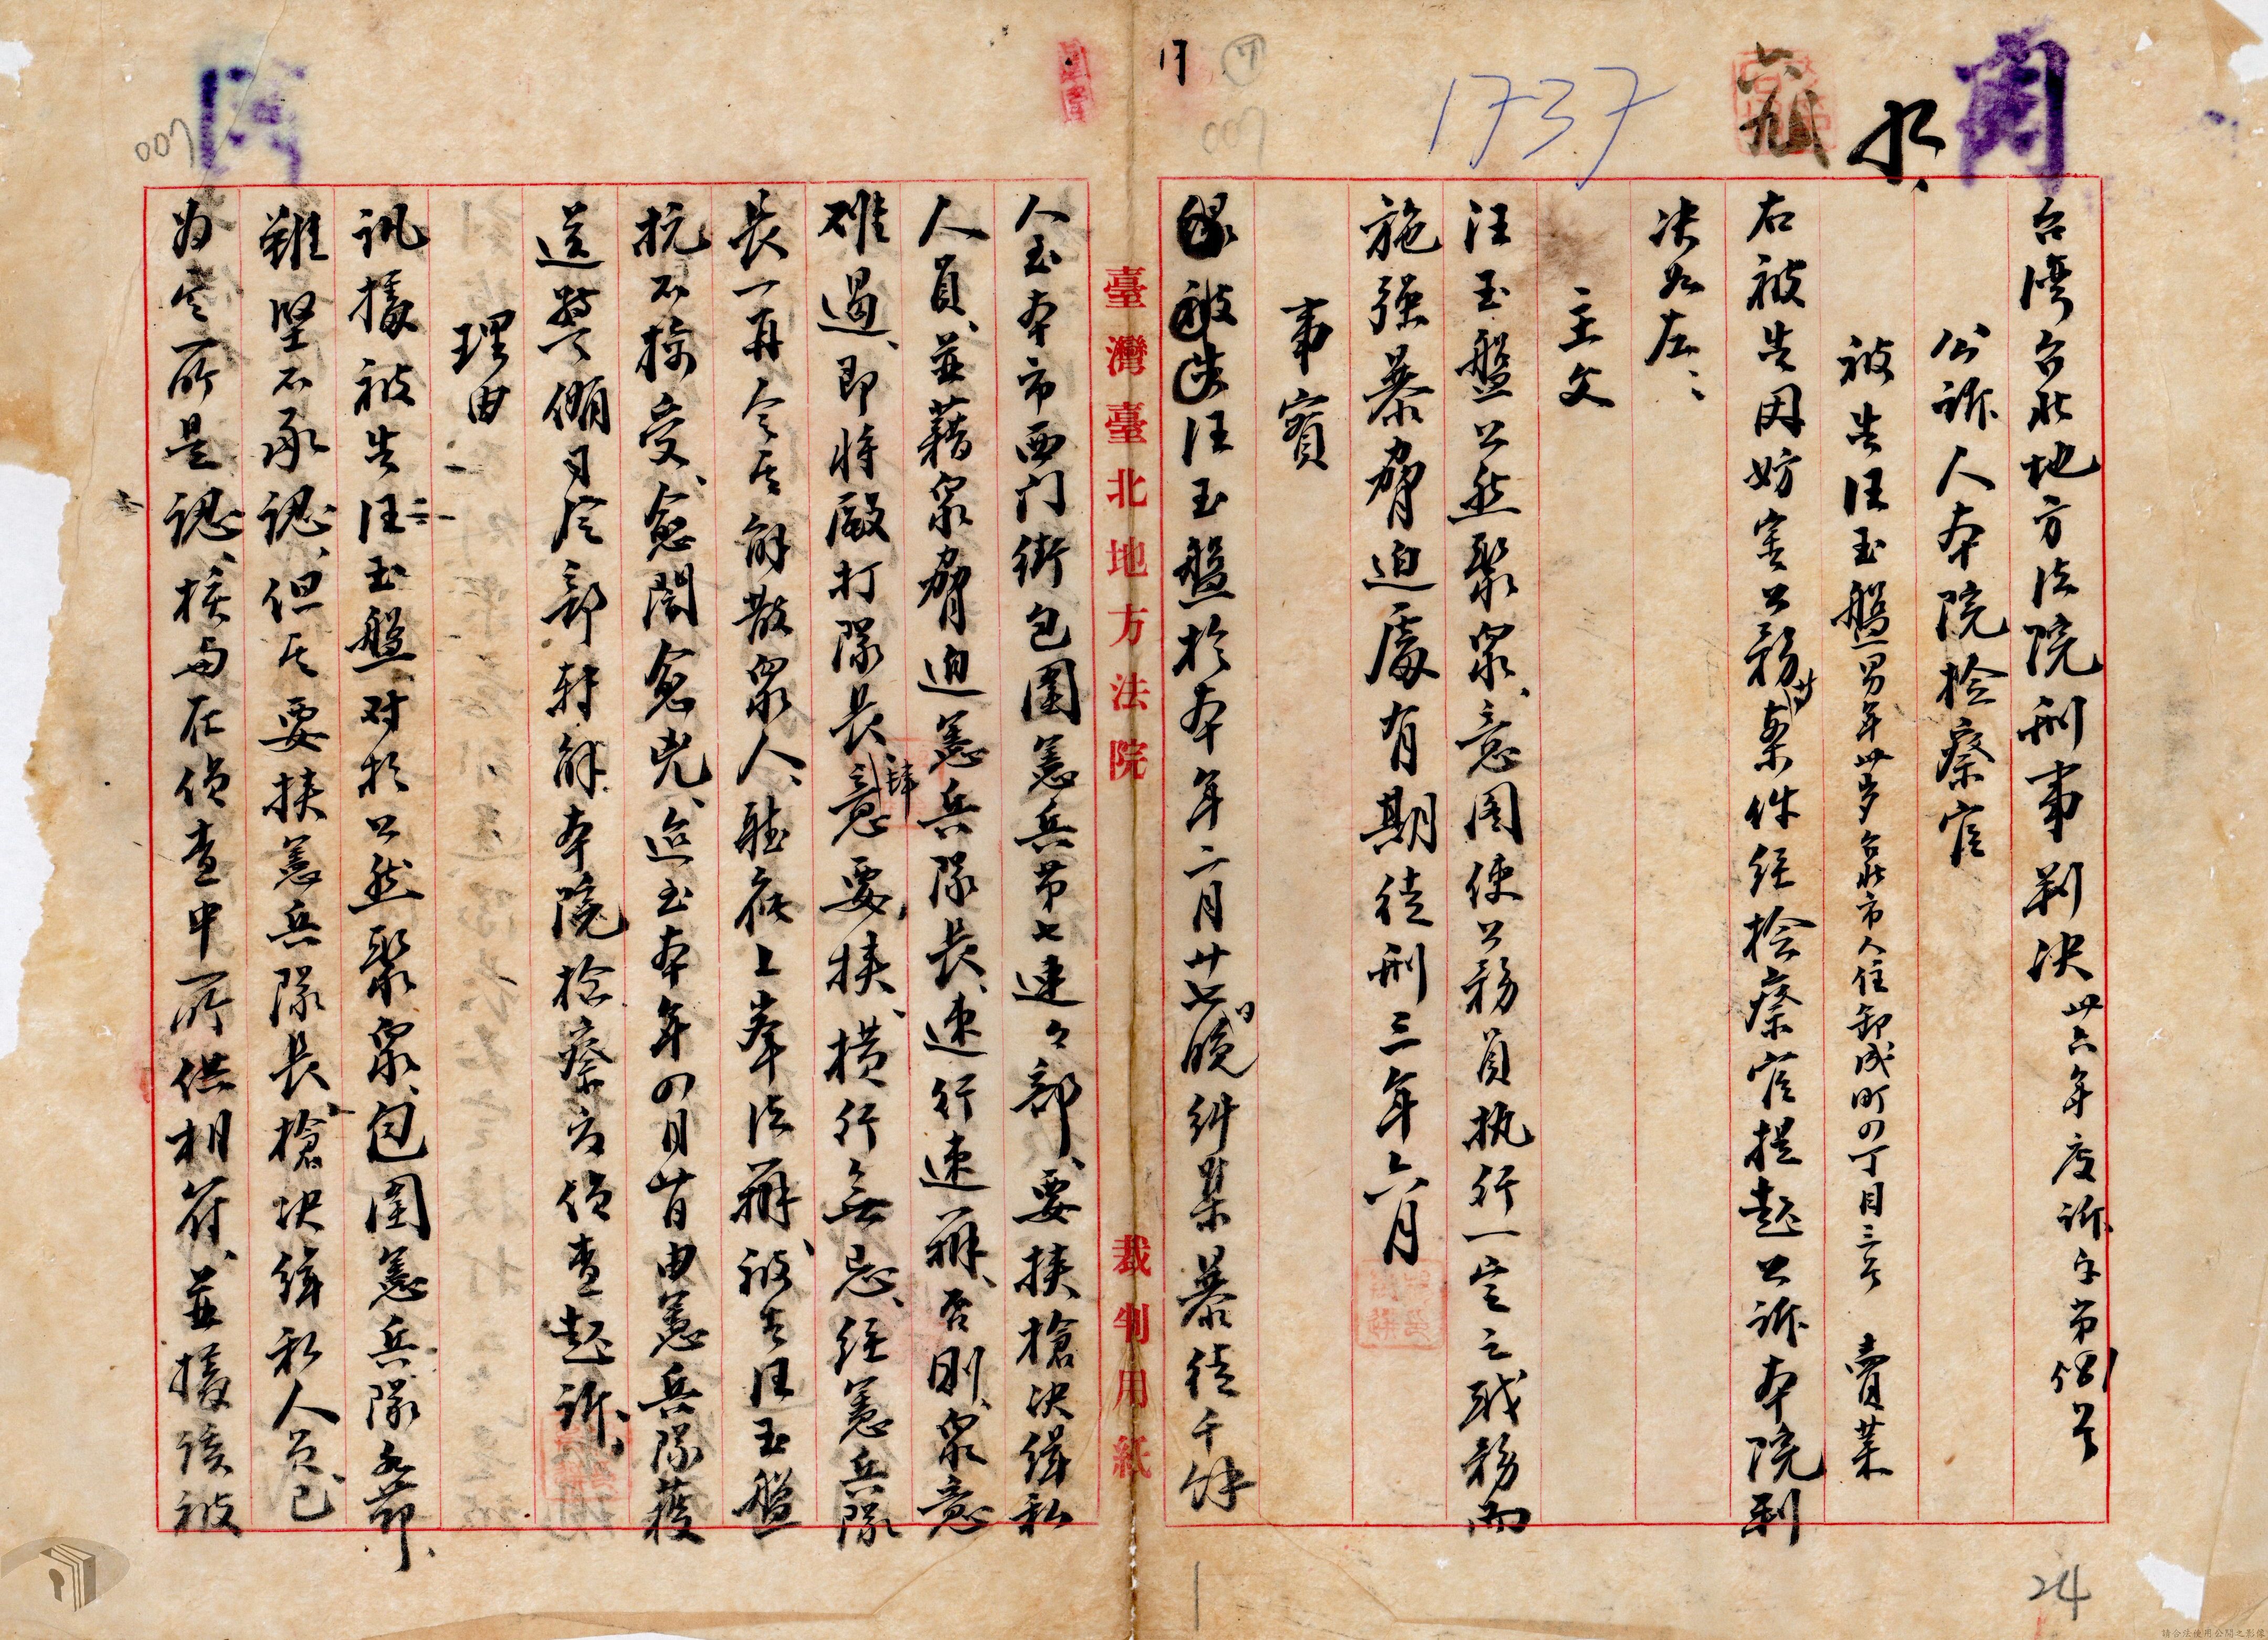 1737
台湾台北地方法院刑事判決 卅六年度訴字第 号
公訴人本院検察官
被告汪玉盤 男年卅岁台北市人住御成町四丁目三号 賣菓
右被告因妨害公務等案件経検察官提起公訴本院判
决如左:
主文
汪玉盤公然聚衆、意圖使公務員执行一定之职務而
施強暴脅迫處有期徒刑三年六月
事實
緣被告汪玉盤於本年二月廿七日晚糾集暴徒千餘
臺灣臺北地方法院 裁判用紙
人至本市西门街包圍憲兵第七連々部、要挟槍决緝私
人員、並藉衆脅迫憲兵隊長、速行速辦、否則、衆意
难遏、即將毆打隊長、肆意要挟、橫行無忌、経憲兵隊
長一再令其解散衆人、聽候上峯法辦、被告汪玉盤
抗不接受、愈鬧愈兇、迨至本年四月 日由憲兵隊獲
送警備司令部轉解本院检察官偵查起訴、
理由
訊據被告汪玉盤对於公然聚衆、包圍憲兵隊各節、
雖堅不承認、但其要挟憲兵隊長槍决緝私人员、已
为其所是認、核与在偵查中所供相符、並據該被
007
007
24
請合法使用公開之影像